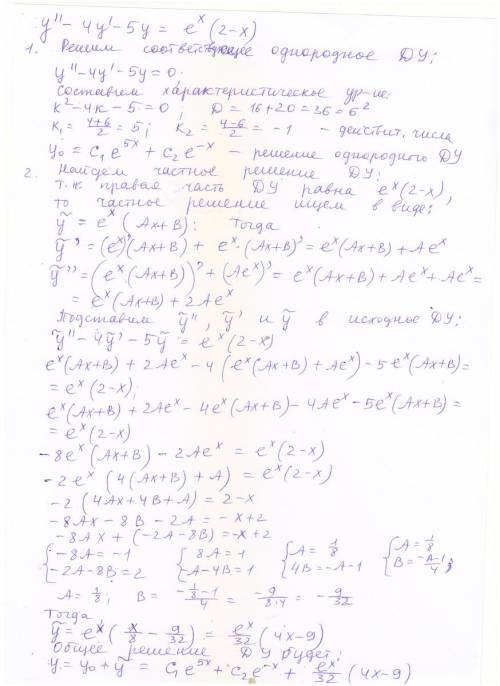 y'' - 4y' - 5y = e^x (2-x)
1. Решим соответствующее однородное ДУ:
y'' - 4y' - 5y = 0.
Составим характеристическое ур-ие:
k² - 4k - 5 = 0; D = 16+20 = 36 = 6²
k₁ = (4+6)/2 = 5; k₂ = (4-6)/2 = -1 - действит. числа
y₀ = C₁e^{5x} + C₂e^{-x} - решение однородного ДУ
2. Найдем частное решение ДУ:
Т.к. правая часть ДУ равна e^x(2-x),
то частное решение ищем в виде:
ỹ = e^x (Ax+B): Тогда
ỹ' = (e^x)'(Ax+B) + e^x·(Ax+B)' = e^x(Ax+B) + Ae^x
ỹ'' = (e^x(Ax+B))' + (Ae^x)' = e^x(Ax+B) + Ae^x + Ae^x =
= e^x(Ax+B) + 2Ae^x
Подставим ỹ'', ỹ' и ỹ в исходное ДУ:
ỹ'' - 4ỹ' - 5ỹ = e^x(2-x)
e^x(Ax+B) + 2Ae^x - 4(e^x(Ax+B) + Ae^x) - 5e^x(Ax+B) =
= e^x(2-x);
e^x(Ax+B) + 2Ae^x - 4e^x(Ax+B) - 4Ae^x - 5e^x(Ax+B) =
= e^x(2-x)
-8e^x(Ax+B) - 2Ae^x = e^x(2-x)
-2e^x (4(Ax+B) + A) = e^x(2-x)
-2 (4Ax+4B+A) = 2-x
-8Ax - 8B - 2A = -x+2
-8Ax + (-2A-8B) = -x+2
{-8A = -1 {8A = 1 {A = 1/8 {A = 1/8
{-2A-8B = 2 {-A-4B = 1 {4B = -A-1 {B = (-A-1)/4;
A = 1/8; B = (-1/8-1)/4 = -9/(8·4) = -9/32
Тогда
ỹ = e^x (x/8 - 9/32) = e^x/32 (4x-9)
Общее решение ДУ будет:
y = y₀ + ỹ = C₁e^{5x} + C₂e^{-x} + e^x/32 (4x-9)